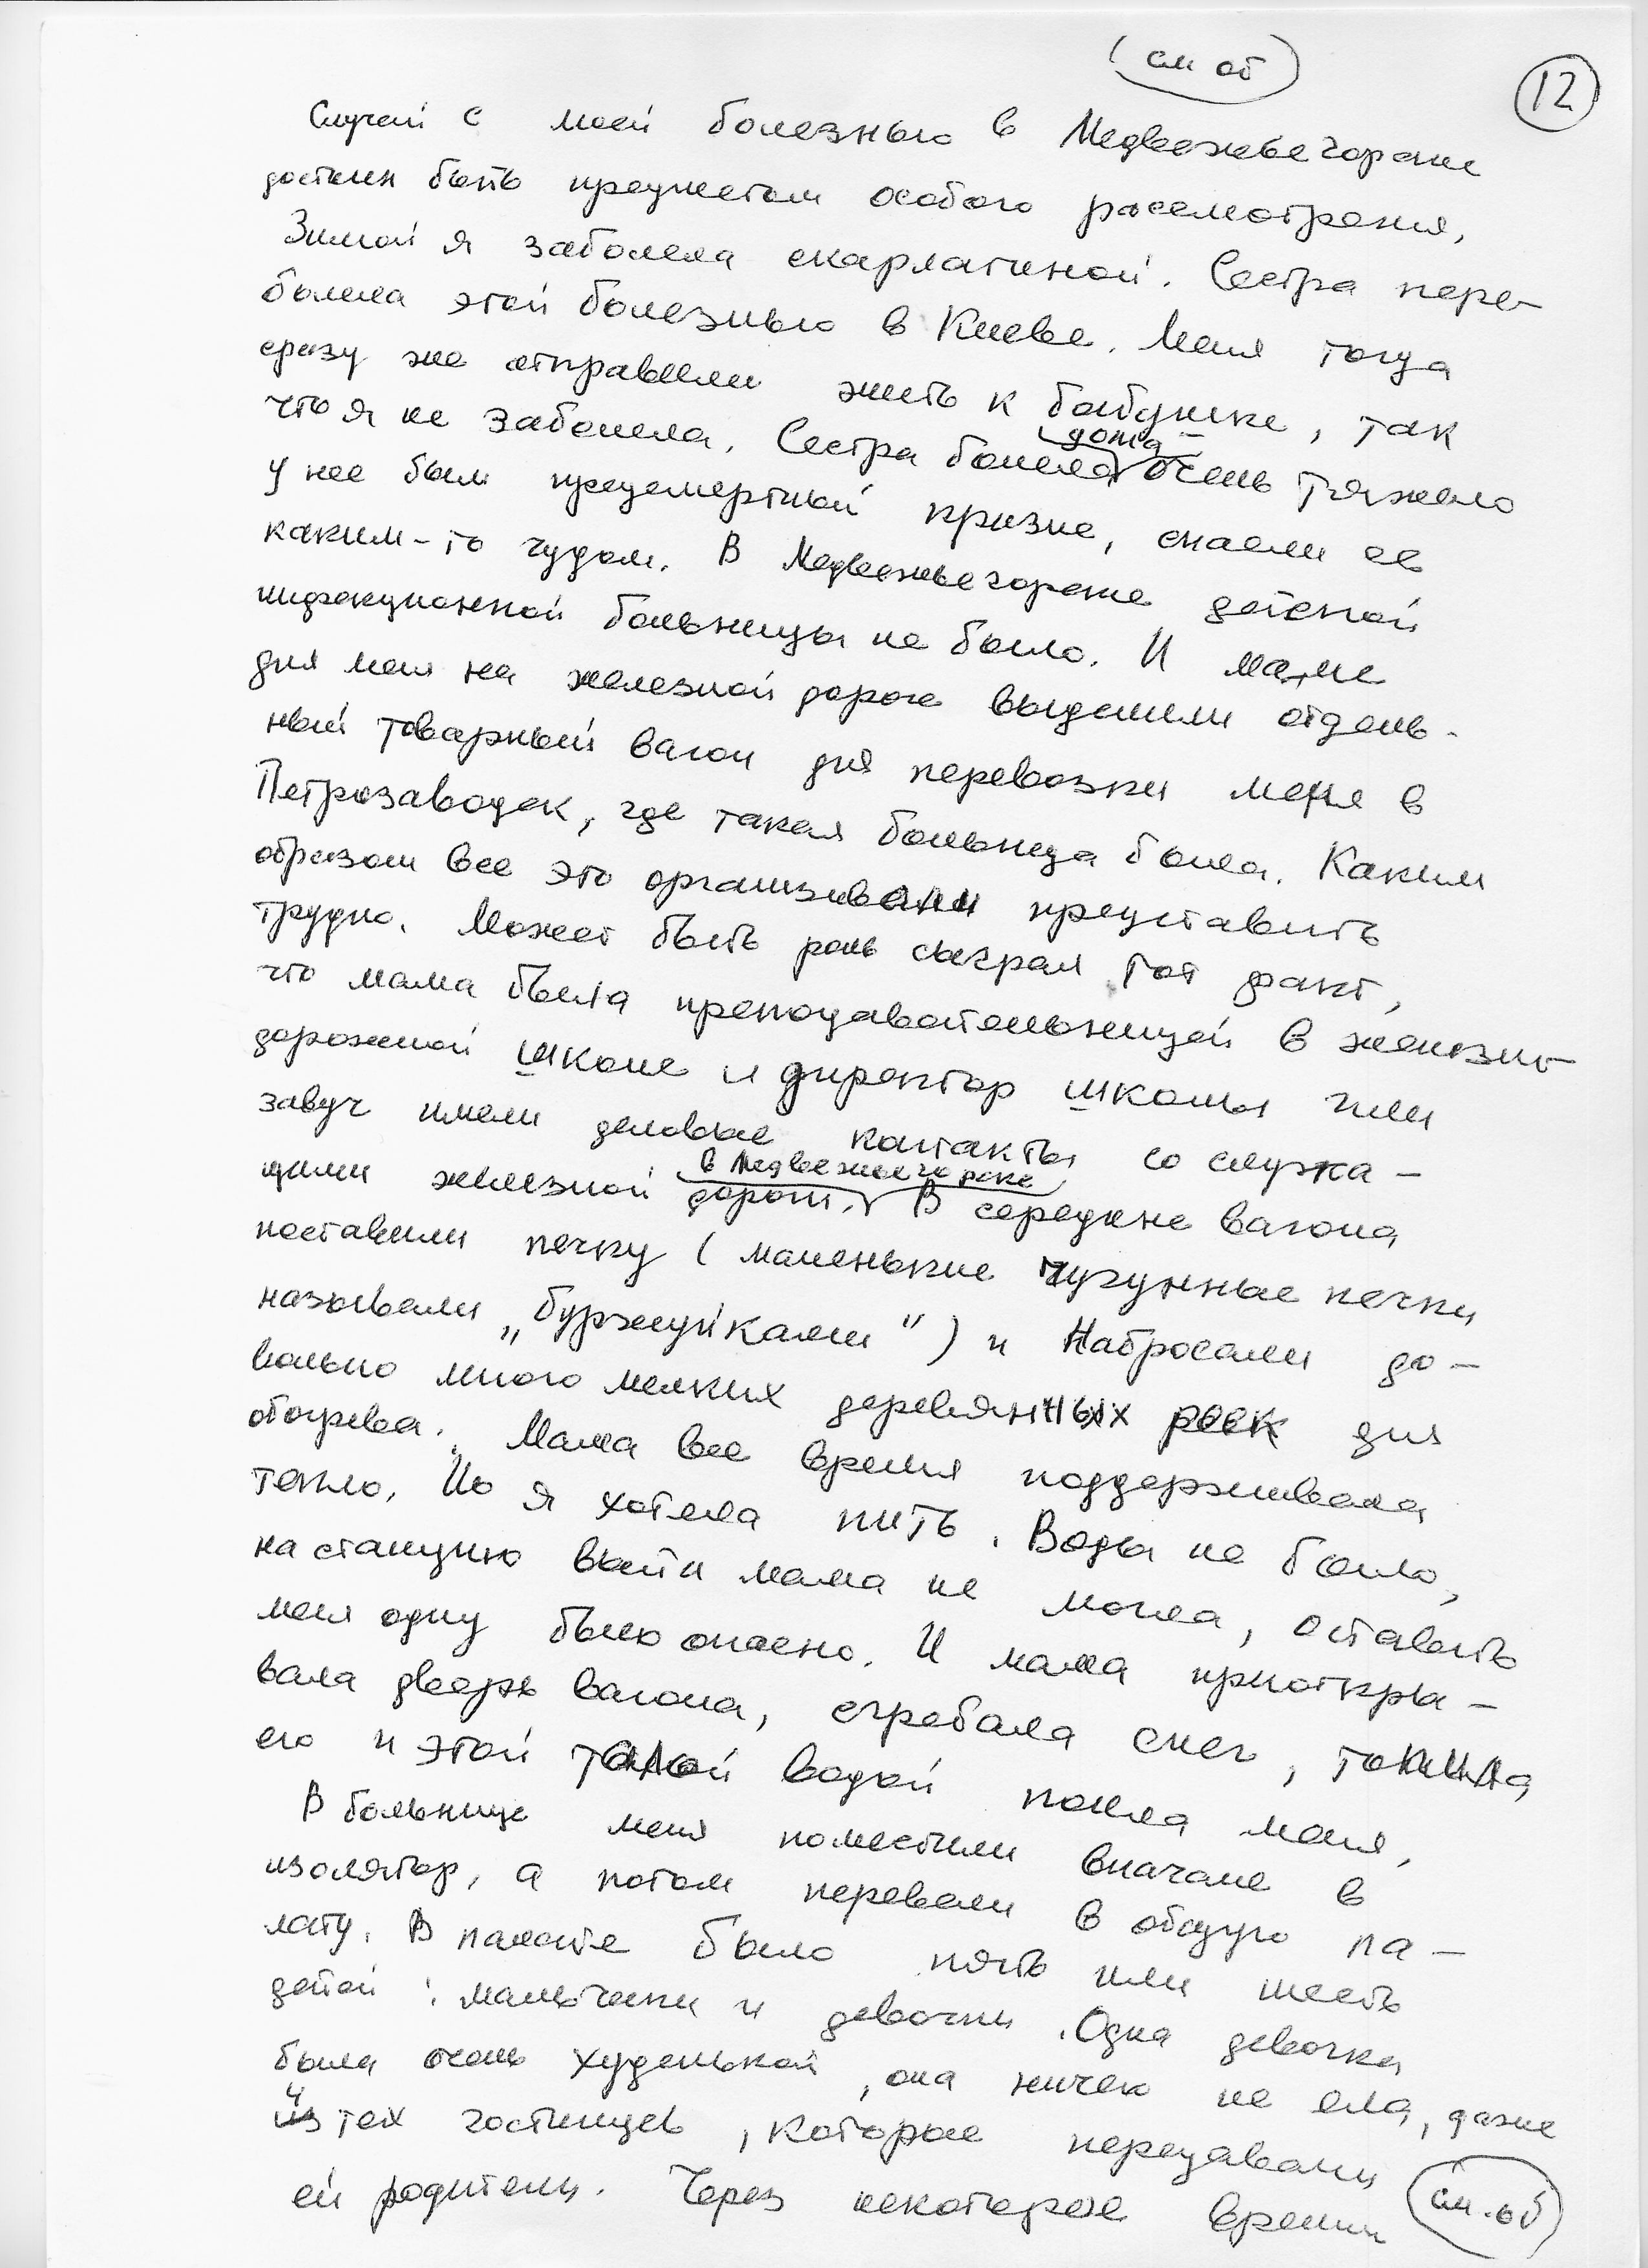 (см об)
12
Случай с моей болезнью в Медвежьегорске
достоин быть предметом особого рассмотрения,
Зимой я заболела скарлатиной. Сестра пере-
болела этой болезнью в Киеве. Меня тогда
сразу же отправили жить к бабушке, так
что я не заболела. Сестра болела дома очень тяжело
у нее был предсмертный кризис, спасли ее
каким-то чудом. В Медвежьегорске детской
инфекционной больницы не было. И маме
для меня на железной дороге выделили отдель-
ный товарный вагон для перевозки меня в
Петрозаводск, где такая больница была. Каким
образом все это организовали представить
трудно. Может быть роль сыграл тот факт,
что мама была преподавательницей в железно-
дорожной школе и директор школы или
завуч имели деловые контакты со служа-
щими железной дороги в Медвежьегорске. В середине вагона
поставили печку (маленькие чугунные печки
называли „буржуйками") и набросали до-
вольно много мелких деревянных реек для
обогрева. Мама все время поддерживала
тепло. Но я хотела пить. Воды не было,
на станцию выйти мама не могла, оставить
меня одну было опасно. И мама приоткры-
вала дверь вагона, сгребала снег, топила
его и этой талой водой поила меня.
В больнице меня поместили вначале в
изолятор, а потом перевели в общую па-
лату. В палате было пять или шесть
детей: мальчики и девочки. Одна девочка
была очень худенькой, она ничего не ела, даже
из тех гостинцев, которые передавали
ей родители. Через некоторое время
(см. об)